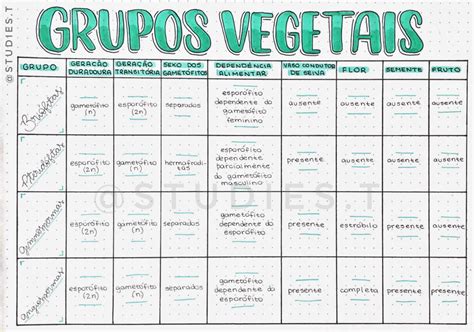 GRUPOS VEGETAIS
@STUDIES.T
GRUPO
GERAÇÃO DURADOURA
GERAÇÃO TRANSITÓRIA
SEXO DOS GAMETÓFITOS
DEPENDÊNCIA ALIMENTAR
VASO CONDUTOR DE SEIVA
FLOR
SEMENTE
FRUTO
Briófitas
gametófito (n)
esporófito (2n)
separados
esporófito
dependente do
gametófito
feminino
ausente
ausente
ausente
ausente
Pteridófitas
esporófito (2n)
gametófito (n)
hermafroditas
esporófito
dependente
parcialmente
do gametófito
masculino
presente
ausente
ausente
ausente
@STUDIES.T
gimnospermas
esporófito (2n)
gametófito (n)
separados
gametófito
dependente do
esporófito
presente
estróbilo
presente
ausente
angiospermas
esporófito (2n)
gametófito (n)
separados
gametófito
dependente do
esporófito
presente
completa
presente
presente